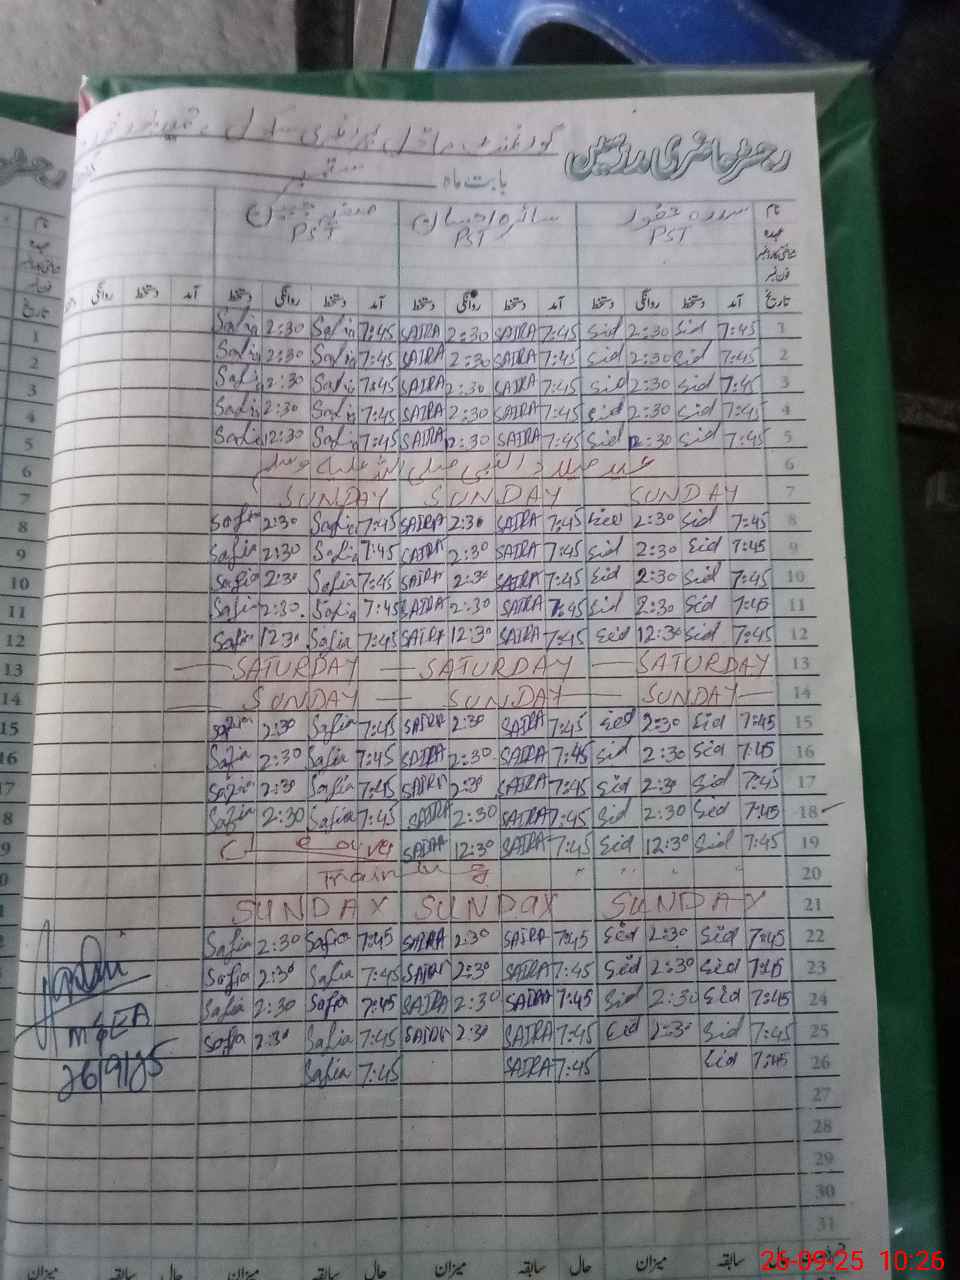 رجسٹر حاضری مدرسین گورنمنٹ ماڈل پرائمری سکول
بابت ماہ ستمبر
نام
سدرہ غفور سائرہ احسان صفیہ
PST PST PST
تاریخ آمد دستخط روانگی دستخط آمد دستخط روانگی دستخط آمد دستخط روانگی دستخط آمد دستخط روانگی
Safia 2:30 Safia 7:45 SAIRA 2:30 SAIRA 7:45 Sid 2:30 Sid 7:45 1
Safia 2:30 Safia 7:45 SAIRA 2:30 SAIRA 7:45 Sid 2:30 Sid 7:45 2
Safia 2:30 Safia 7:45 SAIRA 2:30 SAIRA 7:45 Sid 2:30 Sid 7:45 3
Safia 2:30 Safia 7:45 SAIRA 2:30 SAIRA 7:45 Sid 2:30 Sid 7:45 4
Safia 12:30 Safia 7:45 SAIRA 12:30 SAIRA 7:45 Sid 12:30 Sid 7:45 5
عید میلاد النبی صلی اللہ علیہ وسلم 6
SUNDAY SUNDAY SUNDAY 7
Safia 2:30 Safia 7:45 SAIRA 2:30 SAIRA 7:45 Sid 2:30 Sid 7:45 8
Safia 2:30 Safia 7:45 SAIRA 2:30 SAIRA 7:45 Sid 2:30 Sid 7:45 9
Safia 2:30 Safia 7:45 SAIRA 2:30 SAIRA 7:45 Sid 2:30 Sid 7:45 10
Safia 2:30 Safia 7:45 SAIRA 2:30 SAIRA 7:45 Sid 2:30 Sid 7:45 11
Safia 12:30 Safia 7:45 SAIRA 12:30 SAIRA 7:45 Sid 12:30 Sid 7:45 12
SATURDAY SATURDAY SATURDAY 13
SUNDAY SUNDAY SUNDAY 14
Safia 2:30 Safia 7:45 SAIRA 2:30 SAIRA 7:45 Sid 2:30 Sid 7:45 15
Safia 2:30 Safia 7:45 SAIRA 2:30 SAIRA 7:45 Sid 2:30 Sid 7:45 16
Safia 2:30 Safia 7:45 SAIRA 2:30 SAIRA 7:45 Sid 2:30 Sid 7:45 17
Safia 2:30 Safia 7:45 SAIRA 2:30 SAIRA 7:45 Sid 2:30 Sid 7:45 18
C/ leave SAIRA 12:30 SAIRA 7:45 Sid 12:30 Sid 7:45 19
Training " " " " 20
SUNDAY SUNDAY SUNDAY 21
Safia 2:30 Safia 7:45 SAIRA 2:30 SAIRA 7:45 Sid 2:30 Sid 7:45 22
Safia 2:30 Safia 7:45 SAIRA 2:30 SAIRA 7:45 Sid 2:30 Sid 7:45 23
Safia 2:30 Safia 7:45 SAIRA 2:30 SAIRA 7:45 Sid 2:30 Sid 7:45 24
Safia 2:30 Safia 7:45 SAIRA 2:30 SAIRA 7:45 Sid 2:30 Sid 7:45 25
Safia 7:45 SAIRA 7:45 Sid 7:45 26
27
28
29
30
31
M&EA
26/9/25
میزان سابقہ حال میزان سابقہ حال میزان سابقہ حال
26-09-25 10:26